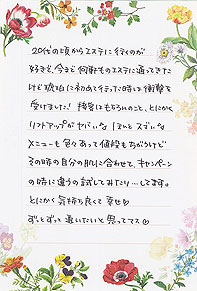 20代の頃からエステに行くのが
好きで、今まで何軒ものエステに通ってきた
けど琥珀に初めて行った時は衝撃を
受けました！接客はもちろんのこと、とにかく
リフトアップがヤバいな ほんとスゴいな
メニューも色々あって値段もちがうけど
その時の自分の肌に合わせて、キャンペーン
の時に違うの試してみたり…してます。
とにかく気持ち良くて幸せ♡
ずっとずっと通いたいと思ってマス♡